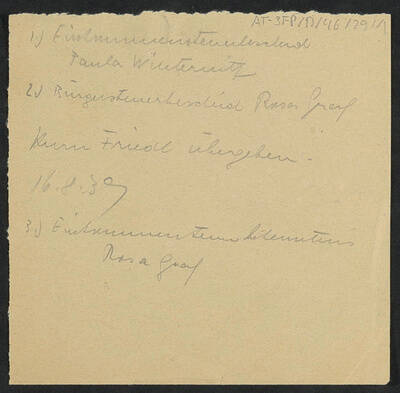 AT-SFP/D/46/29/1
1.) Einkommensteuerbescheid
Paula Winternitz
2.) Bürgersteuerbescheid Rosa Graf
Herrn Friedl übergeben.
16.8.39
3.) Einkommensteuer
Rosa Graf